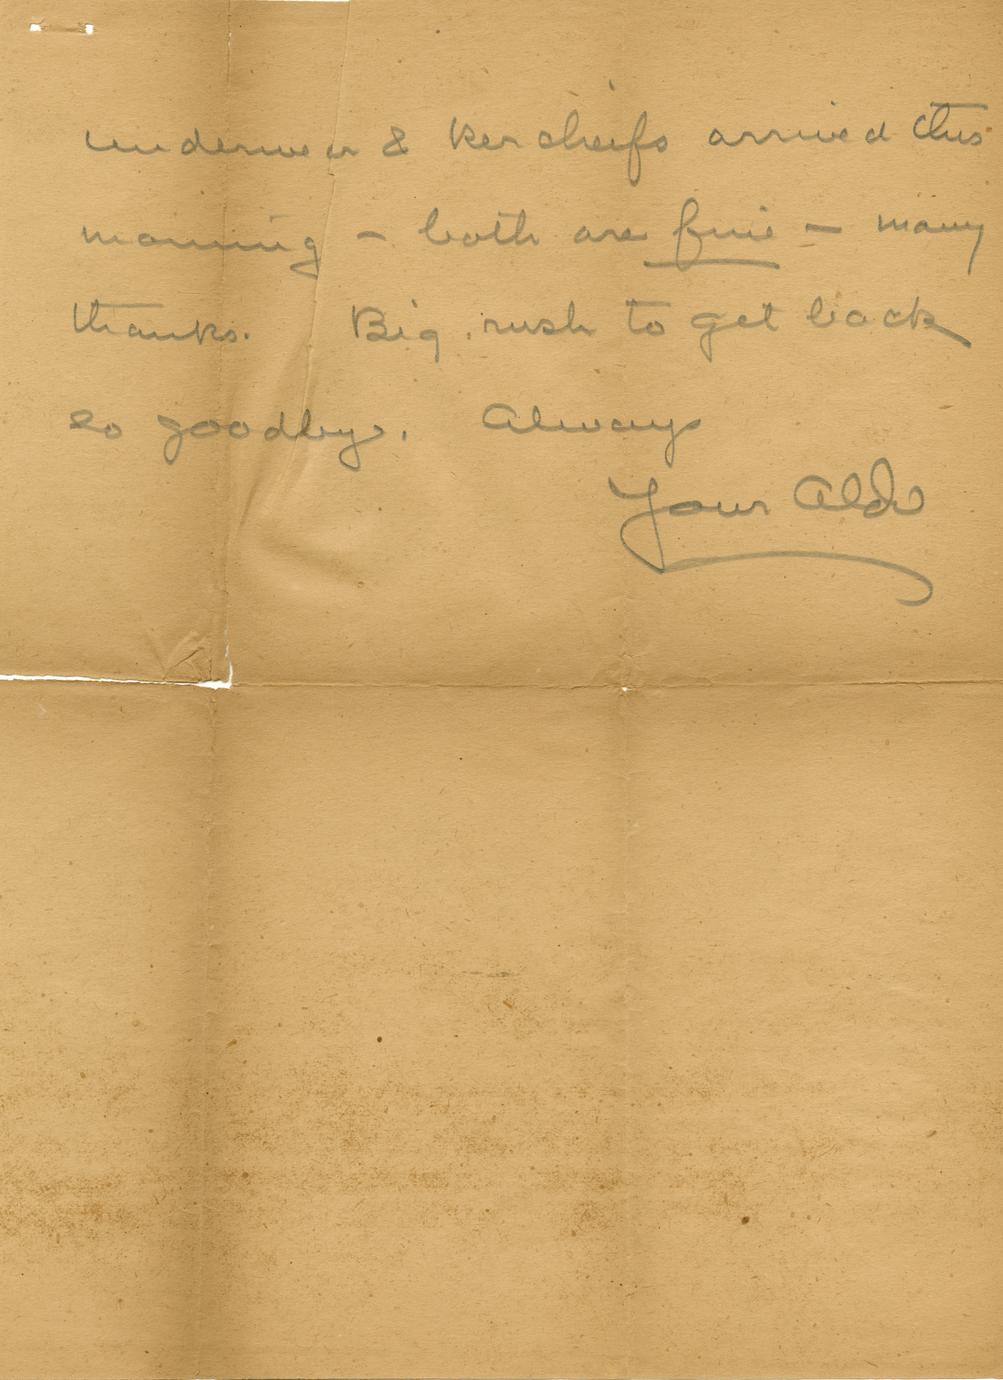 underwear & kercheifs arrived this
morning – both are fine – many
thanks. Big rush to get back
so goodbye. Always
Your Aldo